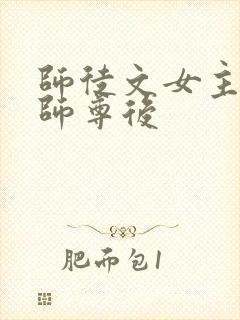 師徒文女主
師尊後
肥而包1